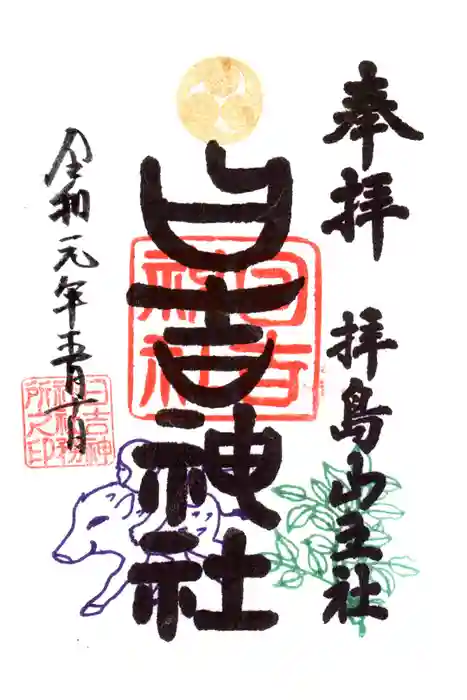 奉拝 拝島山王社
日吉神社
日吉神社
令和元年五月十日
日吉神社務所之印